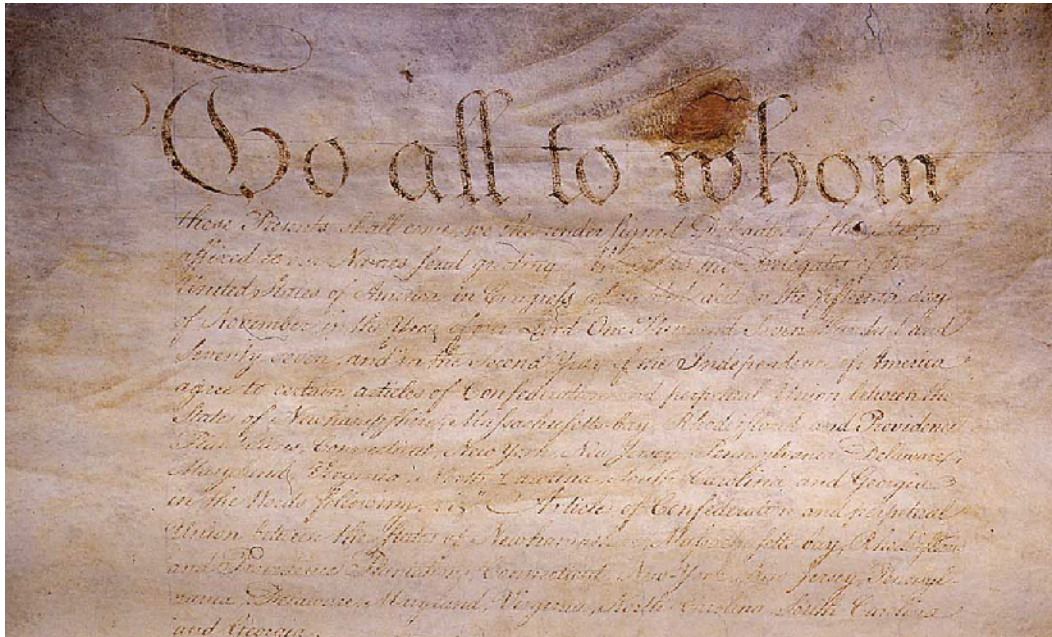 To all to whom
these Presents shall come, we the under signed Delegates of the States
affixed to our Names send greeting. Whereas the Delegates of the
United States of America in Congress assembled did on the fifteenth day
of November in the Year of our Lord One Thousand Seven Hundred and
Seventy seven, and in the Second Year of the Independence of America
agree to certain articles of Confederation and perpetual Union between the
States of Newhampshire, Massachusetts-bay, Rhodeisland and Providence
Plantations, Connecticut, New York, New Jersey, Pennsylvania, Delaware,
Maryland, Virginia, North-Carolina, South-Carolina and Georgia
in the Words following, viz. "Articles of Confederation and perpetual
Union between the States of Newhampshire, Massachusetts-bay, Rhodeisland
and Providence Plantations, Connecticut, New-York, New-Jersey, Pennsyl-
vania, Delaware, Maryland, Virginia, North-Carolina, South-Carolina
and Georgia.